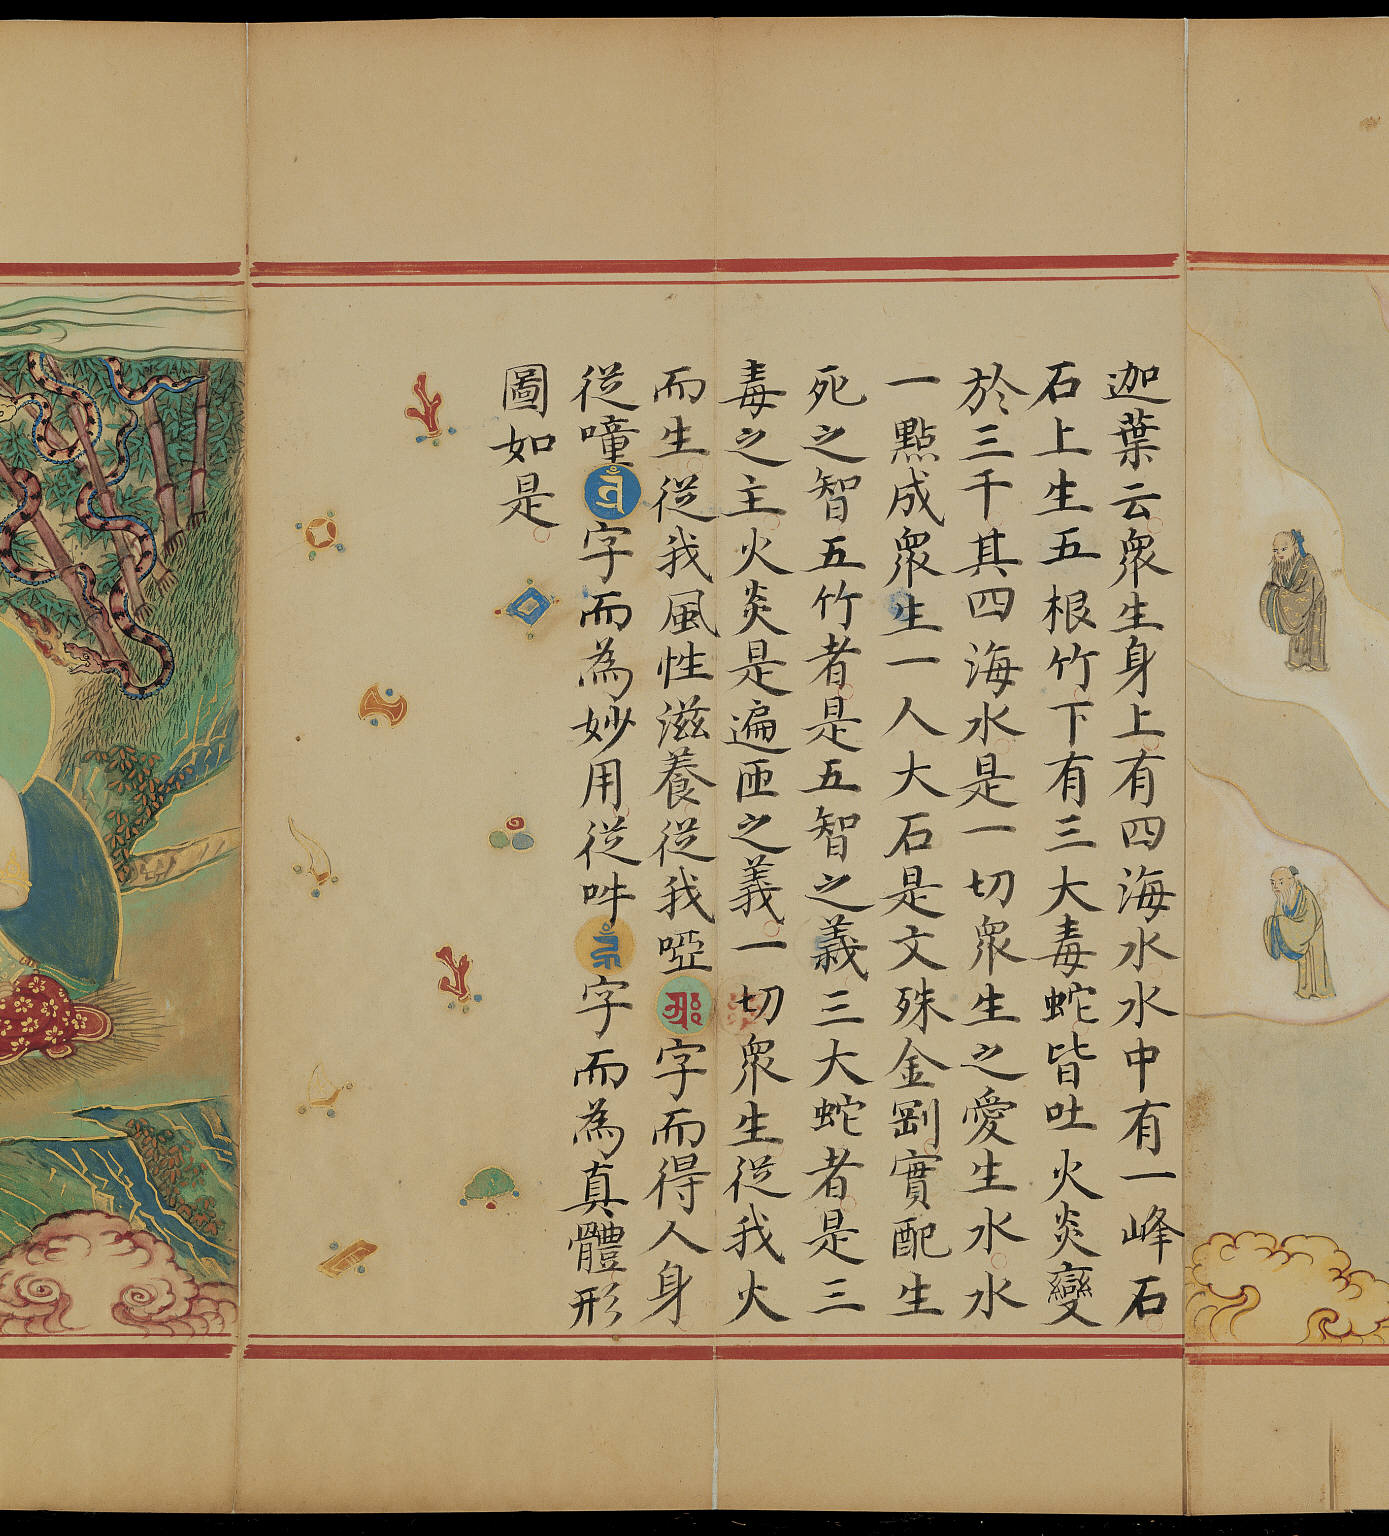 迦葉云衆生身上有四海水水中有一峰石
石上生五根竹下有三大毒蛇皆吐火炎變
於三千其四海水是一切衆生之愛生水水
一點成衆生一人大石是文殊金剛實配生
死之智五竹者是五智之義三大蛇者是三
毒之主火炎是遍匝之義一切衆生從我火
而生從我風性滋養從我啞字而得人身
從㗢字而為妙用從吽字而為真體形
圖如是